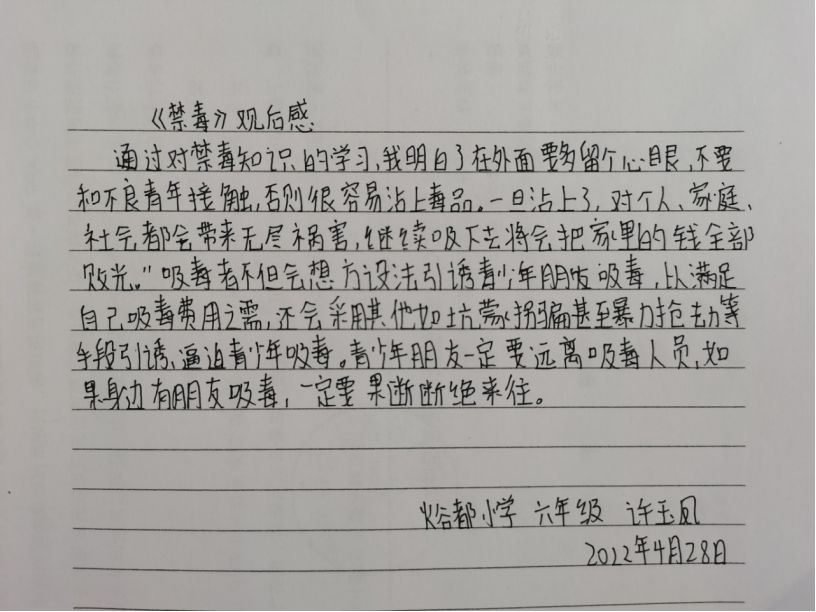 《禁毒》观后感
通过对禁毒知识的学习,我明白了在外面要多留个心眼,不要
和不良青年接触,否则很容易沾上毒品。一旦沾上了,对个人、家庭、
社会都会带来无尽祸害,继续吸下去将会把家里的钱全部
败光。"吸毒者不但会想方设法引诱青少年朋友吸毒,以满足
自己吸毒费用之需,还会采用其他如坑蒙拐骗甚至暴力抢劫等
手段引诱、逼迫青少年吸毒。青少年朋友一定要远离吸毒人员,如
果身边有朋友吸毒,一定要果断断绝来往。
都小学 六年级 许玉凤
2022年4月28日